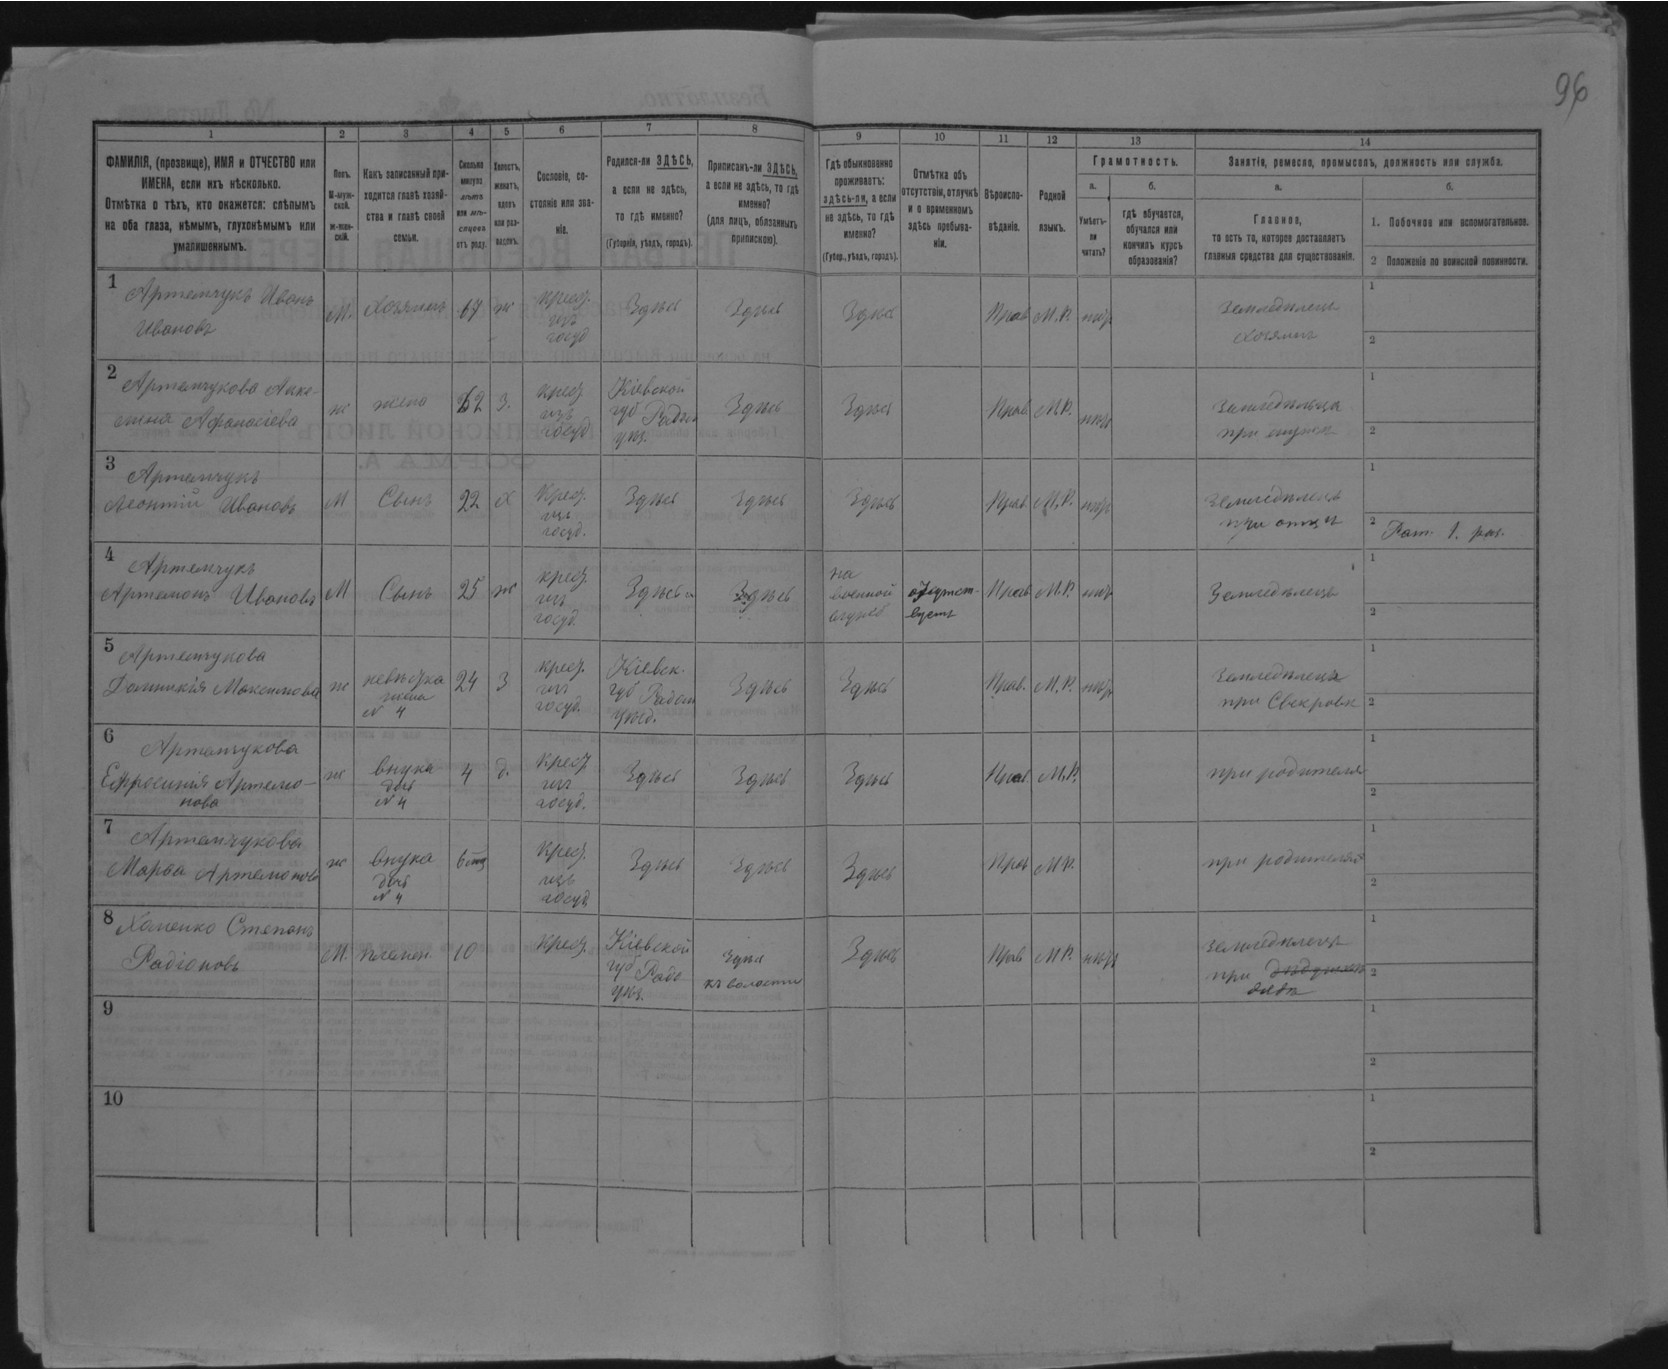 96
1
2
3
4
5
6
7
8
9
10
11
12
13
14
ФАМИЛІЯ, (прозвище), ИМЯ и ОТЧЕСТВО или
ИМЕНА, если ихъ нѣсколько.
Отмѣтка о тѣхъ, кто окажется: слѣпымъ
на оба глаза, нѣмымъ, глухонѣмымъ или
умалишеннымъ.
Полъ.
М-муж-
ской.
ж-жен-
скій.
Какъ записанный при-
ходится главѣ хозяй-
ства и главѣ своей
семьи.
Сколько
минуло
лѣтъ
или мѣ-
сяцевъ
отъ роду.
Холостъ,
женатъ,
вдовъ
или раз-
веденъ.
Сословіе, со-
стояніе или зва-
ніе.
Родился-ли ЗДѢСЬ,
а если не здѣсь,
то гдѣ именно?
(Губернія, уѣздъ, городъ).
Приписанъ-ли ЗДѢСЬ,
а если не здѣсь, то гдѣ
именно?
(для лицъ, обязанныхъ
припискою).
Гдѣ обыкновенно
проживаетъ:
здѣсь-ли, а если
не здѣсь, то гдѣ
именно?
(Губер., уѣздъ, городъ).
Отмѣтка объ
отсутствіи, отлучкѣ
и о временномъ
здѣсь пребыва-
ніи.
Вѣроиспо-
вѣданіе.
Родной
языкъ.
Грамотность.
а.
Умѣетъ-
ли
читать?
б.
гдѣ обучается,
обучался или
кончилъ курсъ
образованія?
Занятія, ремесло, промыселъ, должность или служба.
а.
Главное,
то есть то, которое доставляетъ
главныя средства для существованія.
б.
1. Побочное или вспомогательное.
2 Положеніе по воинской повинности.
1
Артемчукъ Иванъ
Ивановъ
М.
Хозяинъ
67
ж
крест.
изъ
госуд
Здѣсь
Здѣсь
Здѣсь
Прав
М.Р.
нѣтъ
Земледѣлецъ
хозяинъ
1
2
2
Артемчукова Анас-
Афанасіева
ж
жена
62
З.
крест.
изъ
госуд
Кіевской
губ Радом
уѣз.
Здѣсь
Здѣсь
Прав
М.Р.
нѣтъ
при мужѣ
1
2
3
Артемчукъ
Леонтій Ивановъ
М
Сынъ
22
х
Крест.
изъ
госуд.
Здѣсь
Здѣсь
Здѣсь
Прав
М.Р.
нѣтъ
Земледѣлецъ
при отцѣ
1
2 Рат. 1. раз.
4
Артемчукъ
Артемонъ Ивановъ
М
Сынъ
25
ж
крест.
изъ
госуд
Здѣсь
Здѣсь
на
военной
службѣ
отсутст-
вуетъ
Прав
М.Р.
нѣтъ
Земледѣлецъ
1
2
5
Артемчукова
Домникія Максимова
ж
невѣстка
жена
№ 4
24
З
крест.
изъ
госуд.
Кіевск.
губ Радом
уѣзд.
Здѣсь
Здѣсь
Прав.
М.Р.
нѣтъ
Земледѣлецъ
при Свекровѣ
1
2
6
Артемчукова
Ефросинія Артемо-
нова
ж
внука
дочь
№ 4
4
д.
Крест
изъ
госуд.
Здѣсь
Здѣсь
Здѣсь
Прав.
М.Р.
при родителя
1
2
7
Артемчукова
Марѳа Артемонова
ж
внука
дочь
№ 4
6 мц
Крест.
изъ
госуд
Здѣсь
Здѣсь
Здѣсь
Прав
М.Р.
при родителяхъ
1
2
8
Хоменко Степанъ
Радіоновъ
М.
племен
10
Крест.
Кіевской
губ Радо
уѣз.
Здѣсь
къ волости
Здѣсь
Прав
М.Р.
нѣтъ
земледѣлецъ
при дѣдушкѣ
дядѣ
1
2
9
1
2
10
1
2